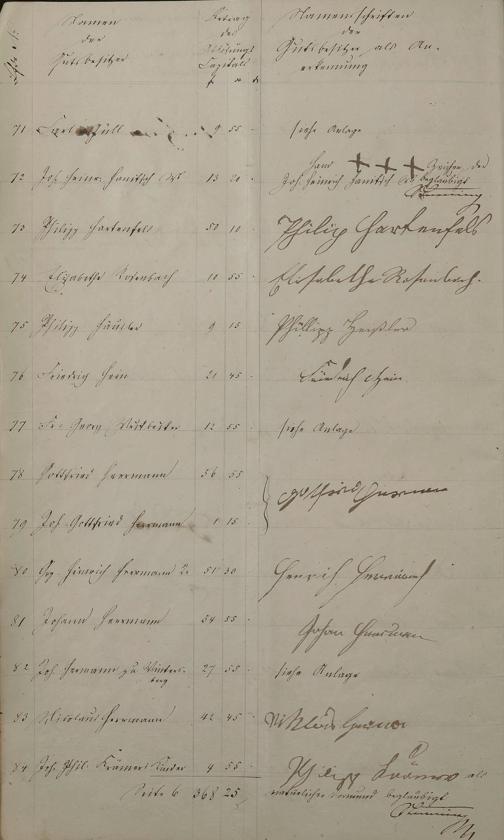 Namen der Gutsbesitzer
Betrag des Ablösungs Capitals
Namensschriften der Gutsbesitzer als Anerkennung
71 Carl Güll 9 55 siehe Anlage
Hand +++ Zeichen des
72 Joh. Heinr. Hanitsch 13 20 Joh. Heinrich Hanitsch beglaubigt
73 Philipp Hartenfels 50 10 Philip Hartenfels
74 Elisabethe Rosenbach 10 55 Elisabethe Rosenbach.
75 Philipp Häußler 9 15 Phillipp Heußler
76 Friedrich Hein 21 45 Friedrich Hein
77 Georg 12 55 siehe Anlage
78 Gottfried Herrmann 56 55 Gotfried Herrmann
79 Joh. Gottfried Herrmann 1 15
80 Heinrich Herrmann 2r 51 30 Henrich Herrmann
81 Johann Herrmann 54 55 Johan Herrman
82 Joh. Hermann zu Wintersberg 27 55 siehe Anlage
83 Nicolaus Herrmann 42 45 Niklas
84 Joh. Phil. Krämers Kinder 4 55 Philipp Krämer als
Seite 6 368 25 natürlicher Vormund beglaubigt